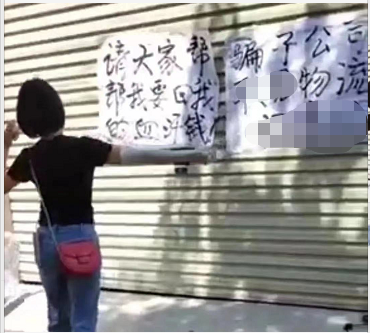 请大家帮
帮我要回我
的血汗钱
骗子公司
物流